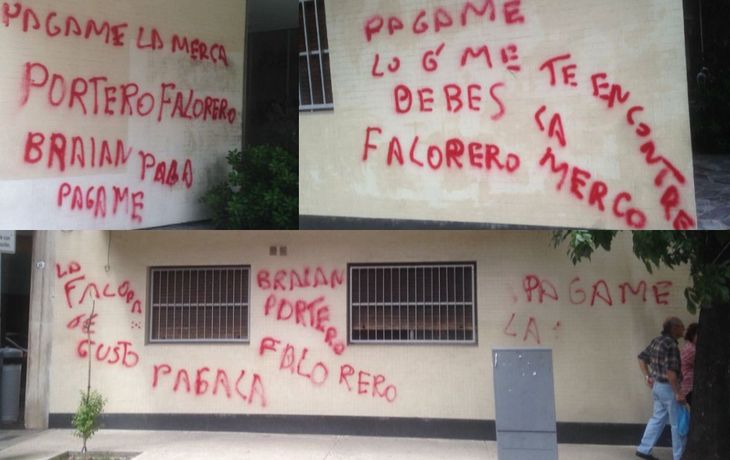 PAGAME LA MERCA
PORTERO FALORERO
BRAIAN PAGA
PAGAME
PAGAME
LO Q' ME
DEBES
FALORERO
TE ENCONTRE
LA
MERCO
LA
FALOPA
TE
GUSTO
PAGALA
BRAIAN
PORTERO
FALORERO
PAGAME
LA